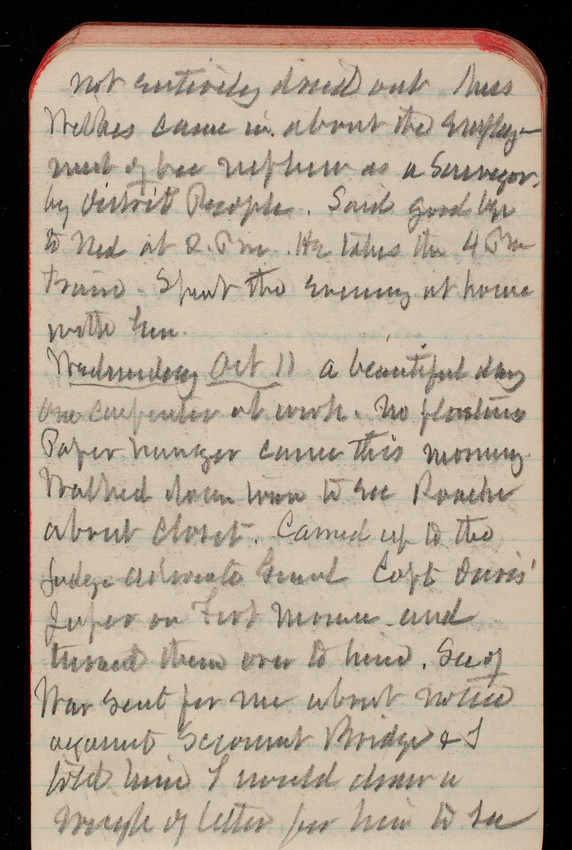 not entirely dried out Miss
Wilkes came in about the employ-
ment of her nephew as a Surveyor,
by District People. Said good bye
to Ned at 2. P m. He takes the 4 P m
train. Spent the evening at home
with
Wednesday Oct 11 a beautiful day
one carpenter at work. No plasterer
Paper hanger came this morning.
Walked down town to see Roache
about closet. Carried up to the
Judge Advocate General Capt Davis'
paper on Fort Monroe and
turned them over to him. Sec of
War sent for me about notice
against Bridge & I
told him I would draw a
rough of letter for him to see